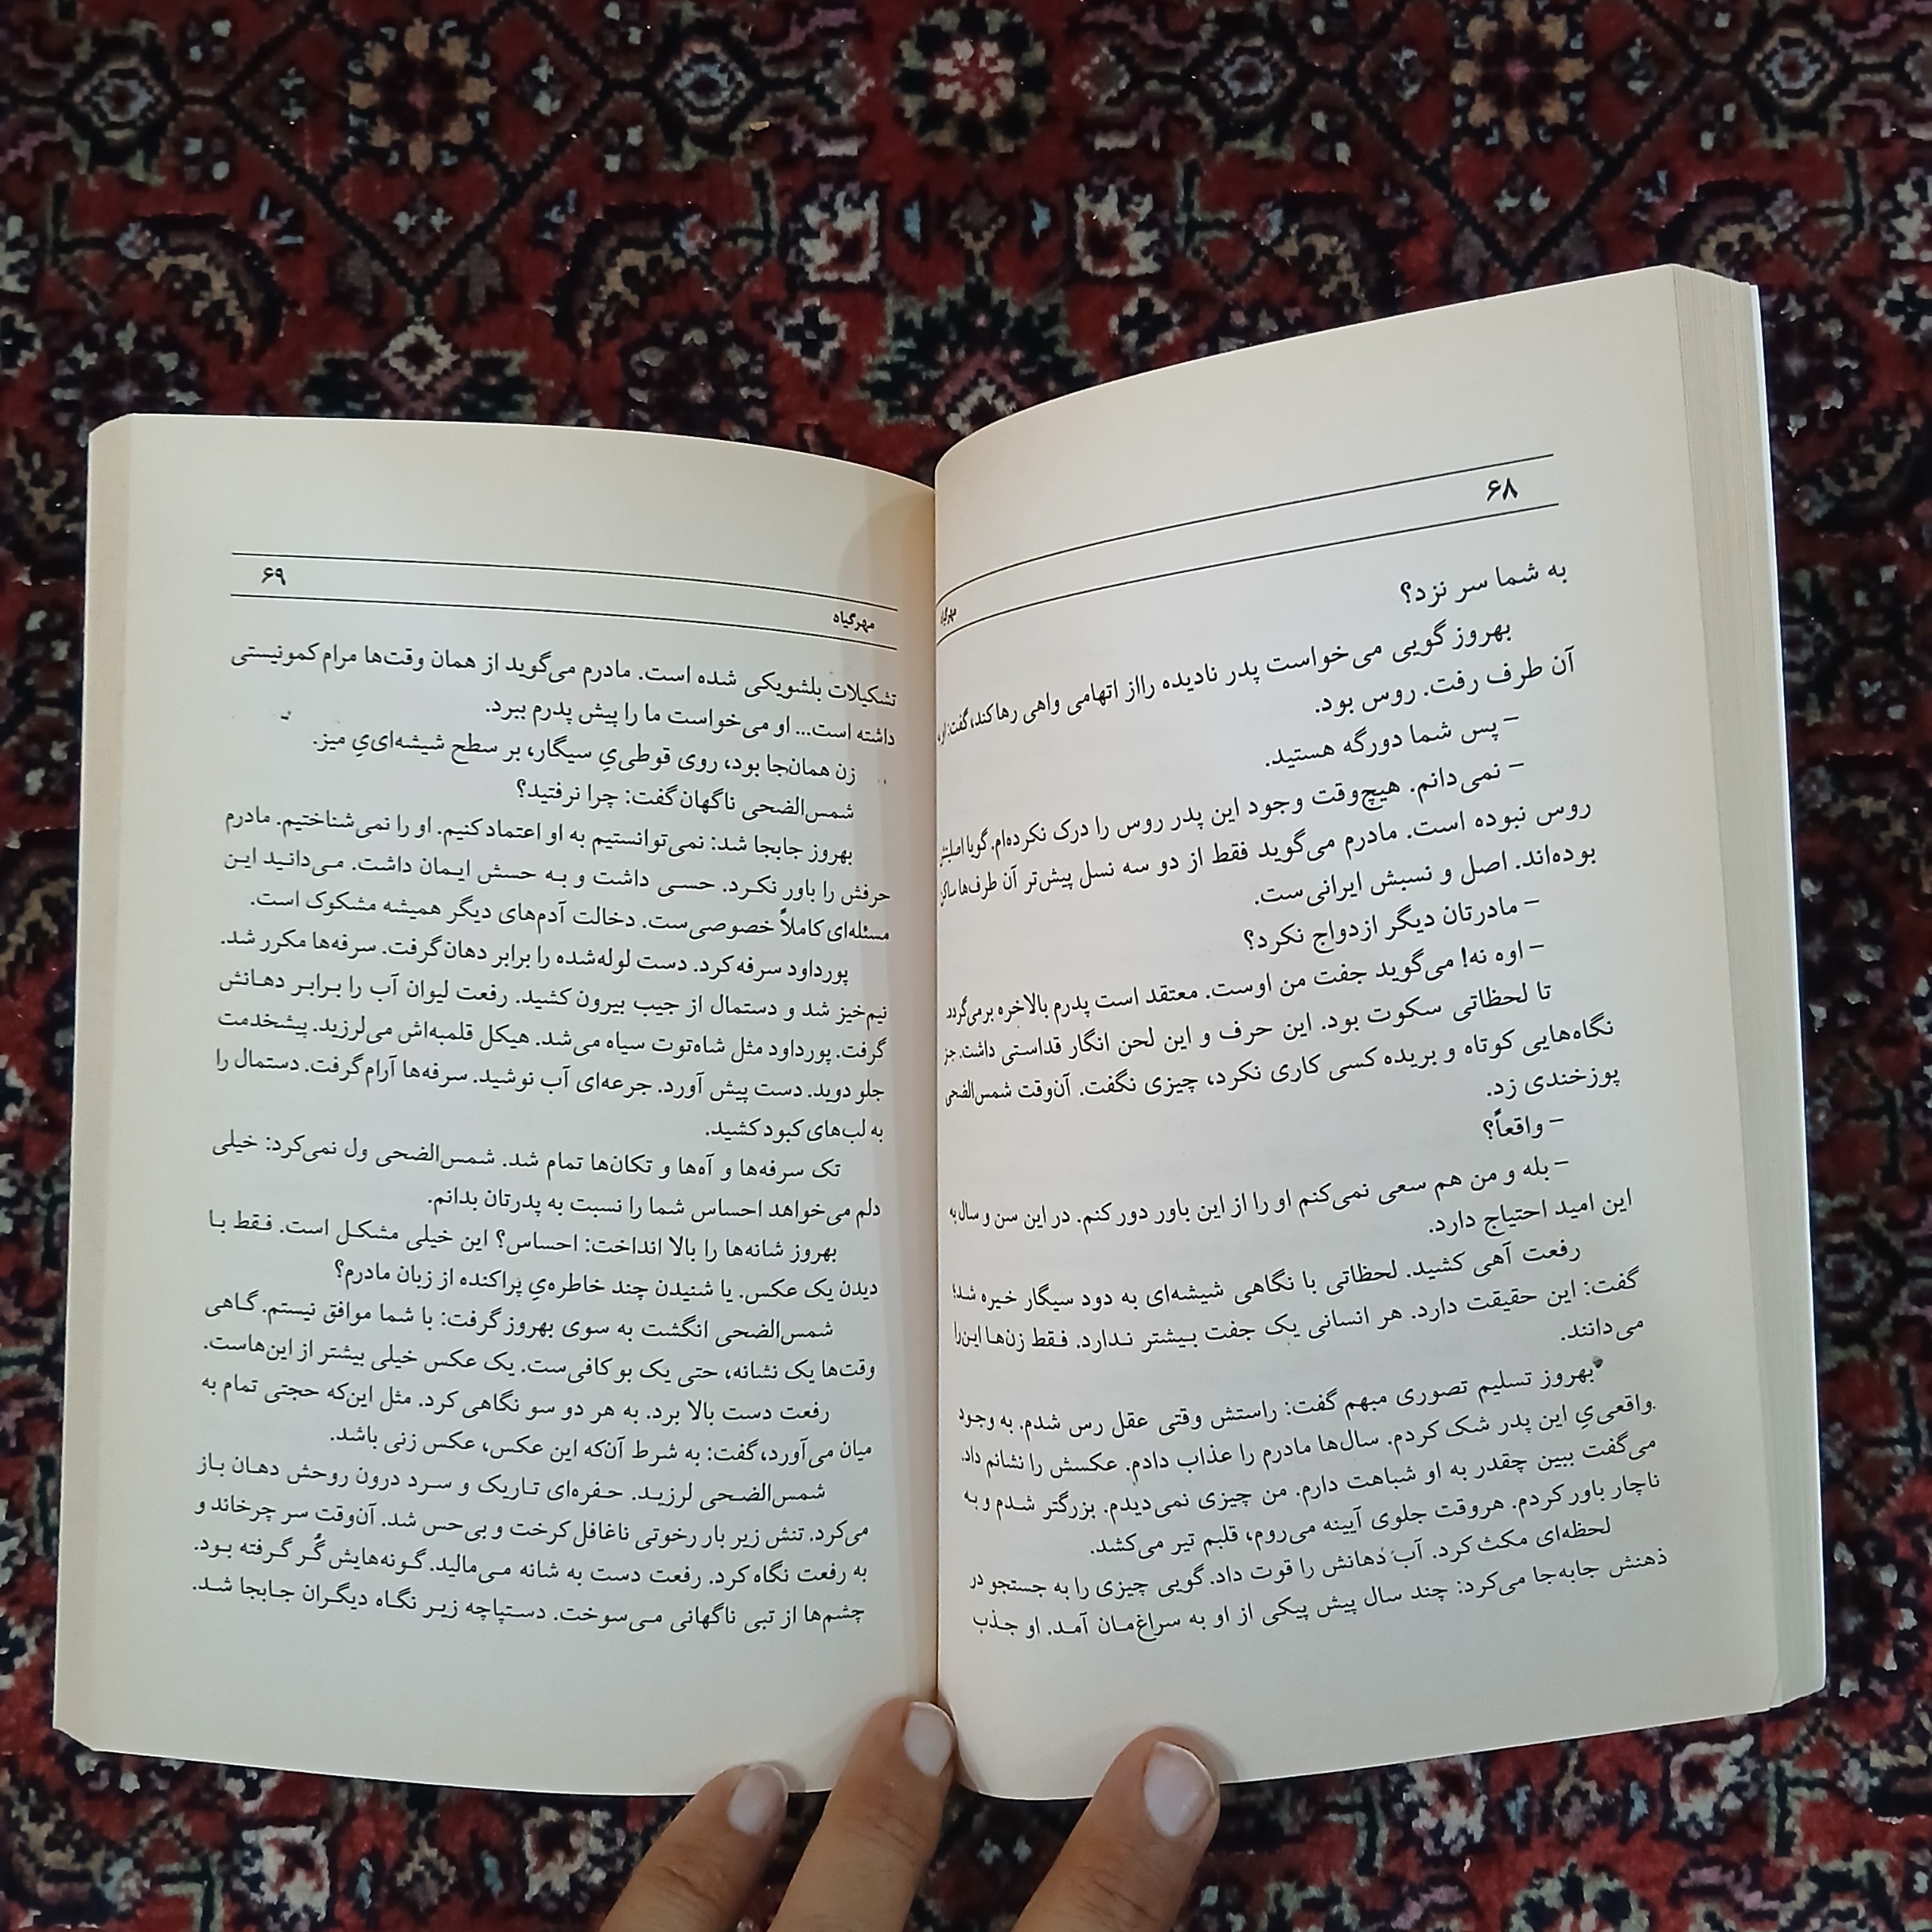 ۶۸
مهرگیاه
به شما سر نزد؟
بهروز گویی می‌خواست پدر نادیده رااز اتهامی واهی رها کند، گفت: او،
آن طرف رفت. روس بود.
– پس شما دورگه هستید.
– نمی‌دانم. هیچ‌وقت وجود این پدر روس را درک نکرده‌ام. گویا اصلیتش
روس نبوده است. مادرم می‌گوید فقط از دو سه نسل پیش‌تر آن طرف‌ها ساکن
بوده‌اند. اصل و نسبش ایرانی‌ست.
– مادرتان دیگر ازدواج نکرد؟
– اوه نه! می‌گوید جفت من اوست. معتقد است پدرم بالاخره برمی‌گردد.
تا لحظاتی سکوت بود. این حرف و این لحن انگار قداستی داشت. جز
نگاه‌هایی کوتاه و بریده کسی کاری نکرد، چیزی نگفت. آن‌وقت شمس‌الضحی
پوزخندی زد.
– واقعاً؟
– بله و من هم سعی نمی‌کنم او را از این باور دور کنم. در این سن و سال به
این امید احتیاج دارد.
رفعت آهی کشید. لحظاتی با نگاهی شیشه‌ای به دود سیگار خیره شد؛
گفت: این حقیقت دارد. هر انسانی یک جفت بیشتر ندارد. فقط زن‌ها این‌را
می‌دانند.
بهروز تسلیم تصوری مبهم گفت: راستش وقتی عقل رس شدم. به وجود
واقعی‌یِ این پدر شک کردم. سال‌ها مادرم را عذاب دادم. عکسش را نشانم داد.
می‌گفت ببین چقدر به او شباهت دارم. من چیزی نمی‌دیدم. بزرگتر شدم و به
ناچار باور کردم. هروقت جلوی آیینه می‌روم، قلبم تیر می‌کشد.
لحظه‌ای مکث کرد. آب دهانش را قوت داد. گویی چیزی را به جستجو در
ذهنش جابه‌جا می‌کرد: چند سال پیش پیکی از او به سراغ‌مان آمد. او جذب
۶۹
مهرگیاه
تشکیلات بلشویکی شده است. مادرم می‌گوید از همان وقت‌ها مرام کمونیستی
داشته است... او می‌خواست ما را پیش پدرم ببرد.
زن همان‌جا بود، روی قوطی‌یِ سیگار، بر سطح شیشه‌ای‌یِ میز.
شمس‌الضحی ناگهان گفت: چرا نرفتید؟
بهروز جابجا شد: نمی‌توانستیم به او اعتماد کنیم. او را نمی‌شناختیم. مادرم
حرفش را باور نکرد. حسی داشت و به حسش ایمان داشت. می‌دانید این
مسئله‌ای کاملاً خصوصی‌ست. دخالت آدم‌های دیگر همیشه مشکوک است.
پورداود سرفه کرد. دست لوله‌شده را برابر دهان گرفت. سرفه‌ها مکرر شد.
نیم‌خیز شد و دستمال از جیب بیرون کشید. رفعت لیوان آب را برابر دهانش
گرفت. پورداود مثل شاه‌توت سیاه می‌شد. هیکل قلمبه‌اش می‌لرزید. پیشخدمت
جلو دوید. دست پیش آورد. جرعه‌ای آب نوشید. سرفه‌ها آرام گرفت. دستمال را
به لب‌های کبود کشید.
تک سرفه‌ها و آه‌ها و تکان‌ها تمام شد. شمس‌الضحی ول نمی‌کرد: خیلی
دلم می‌خواهد احساس شما را نسبت به پدرتان بدانم.
بهروز شانه‌ها را بالا انداخت: احساس؟ این خیلی مشکل است. فقط با
دیدن یک عکس. یا شنیدن چند خاطره‌یِ پراکنده از زبان مادرم؟
شمس‌الضحی انگشت به سوی بهروز گرفت: با شما موافق نیستم. گاهی
وقت‌ها یک نشانه، حتی یک بو کافی‌ست. یک عکس خیلی بیشتر از این‌هاست.
رفعت دست بالا برد. به هر دو سو نگاهی کرد. مثل این‌که حجتی تمام به
میان می‌آورد، گفت: به شرط آن‌که این عکس، عکس زنی باشد.
شمس‌الضحی لرزید. حفره‌ای تاریک و سرد درون روحش دهان باز
می‌کرد. تنش زیر بار رخوتی ناغافل کرخت و بی‌حس شد. آن‌وقت سر چرخاند و
به رفعت نگاه کرد. رفعت دست به شانه می‌مالید. گونه‌هایش گُر گرفته بود.
چشم‌ها از تبی ناگهانی می‌سوخت. دستپاچه زیر نگاه دیگران جابجا شد.